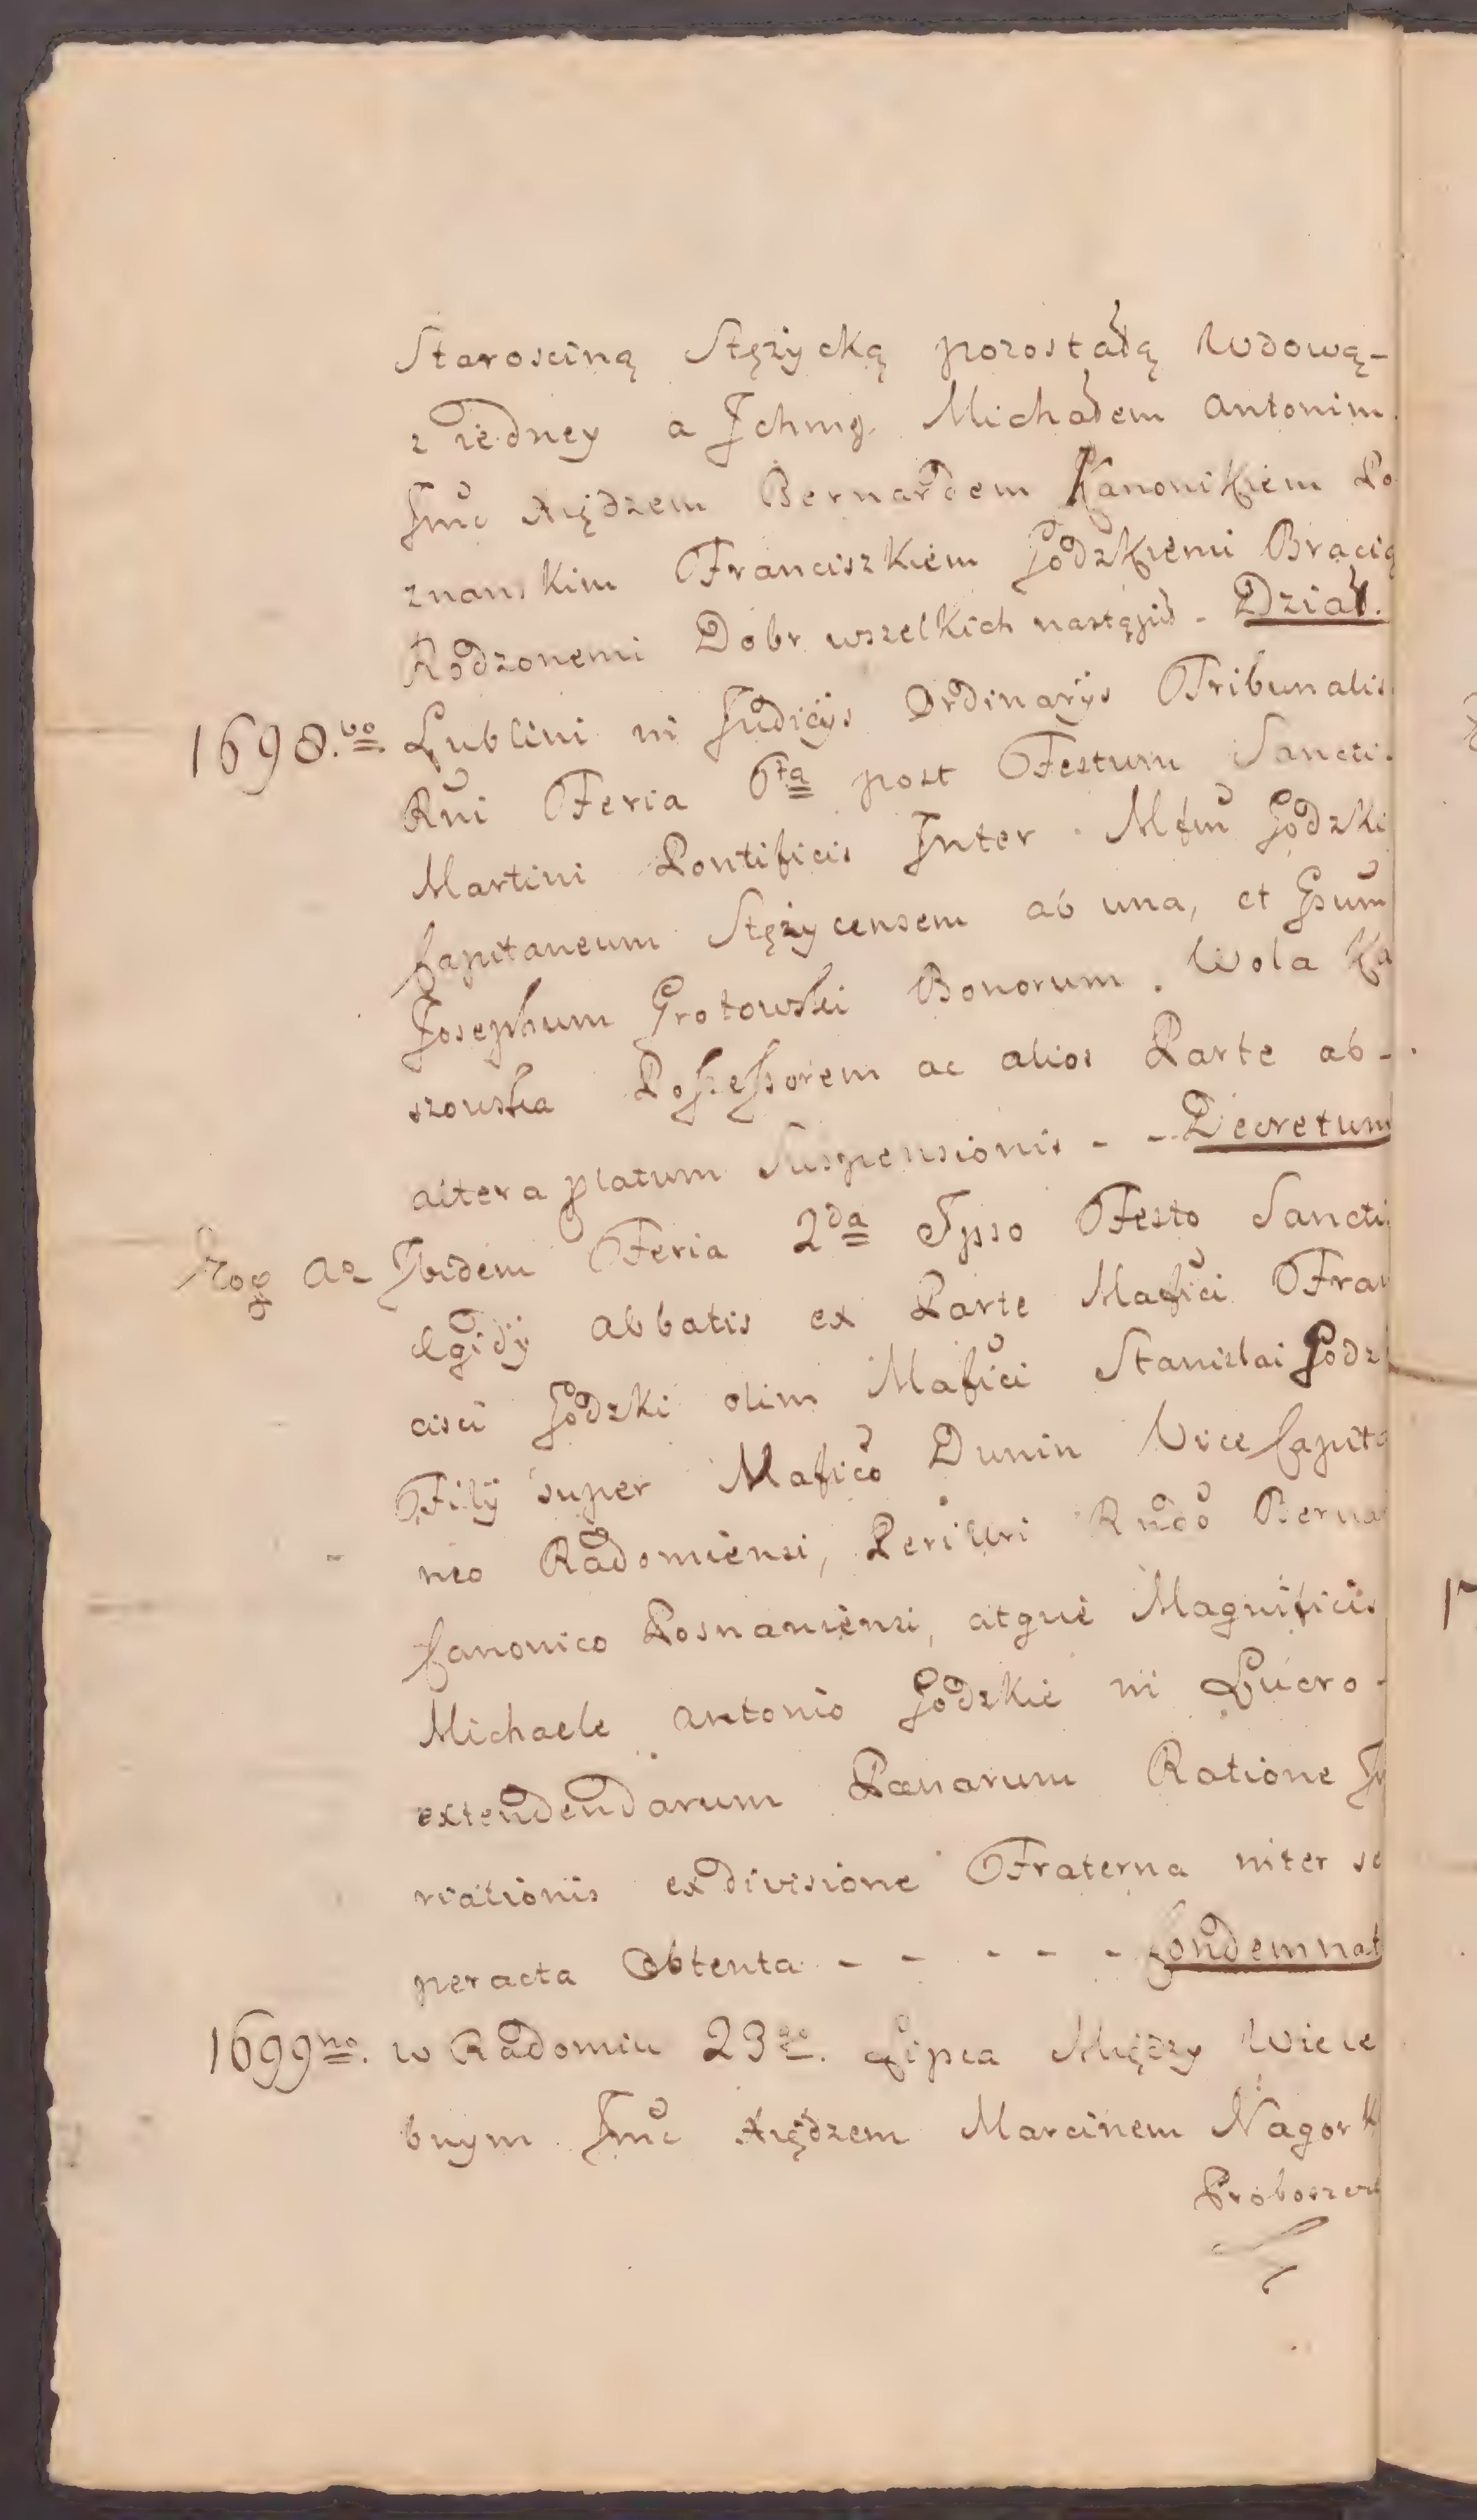 Starosciną Stężycką pozostałą Wdową-
z iedney a Jchmę. Michałem Antonim
Jmc Xiędzem Bernardem Kanonikiem Po
znanskim Franciszkiem Godzkiemi Bracią
Rodzonemi Dobr wszelkich nastąpił - Dział.
1698.vo Lublini in Judicijs Ordinarijs Tribunalis
Rni Feria 6ta post Festum Sancti
Martini Pontificis Inter Mfm Godzki
Capitaneum Stężycensem ab una, et Gsum
Josephum Grotowski Bonorum. Wola Ka
szowska Possessorem ac alios Parte ab-
altera platum Suspensionis - - Decretum
Ibidem Feria 2da Ipso Festo Sancti
Egidij Abbatis ex Parte Mafici Fran
cisci Godzki olim Mafici Stanislai Godzk
Filij super Mafico Dunin Vice Capita
neo Radomiensi, Perillri Rndo Berna
Canonico Posnaniensi, atque Magnificis
Michaele Antonio Godzkie in Lucro-
extendendarum Pœnarum Ratione
riationis ex divisione Fraterna inter se
peracta Obtenta - - - - - Condemnat
1699no. w Radomiu 23go. Lipca Między Wiele
bnym Jmc Xiędzem Marcinem Nagork
Proboszcze